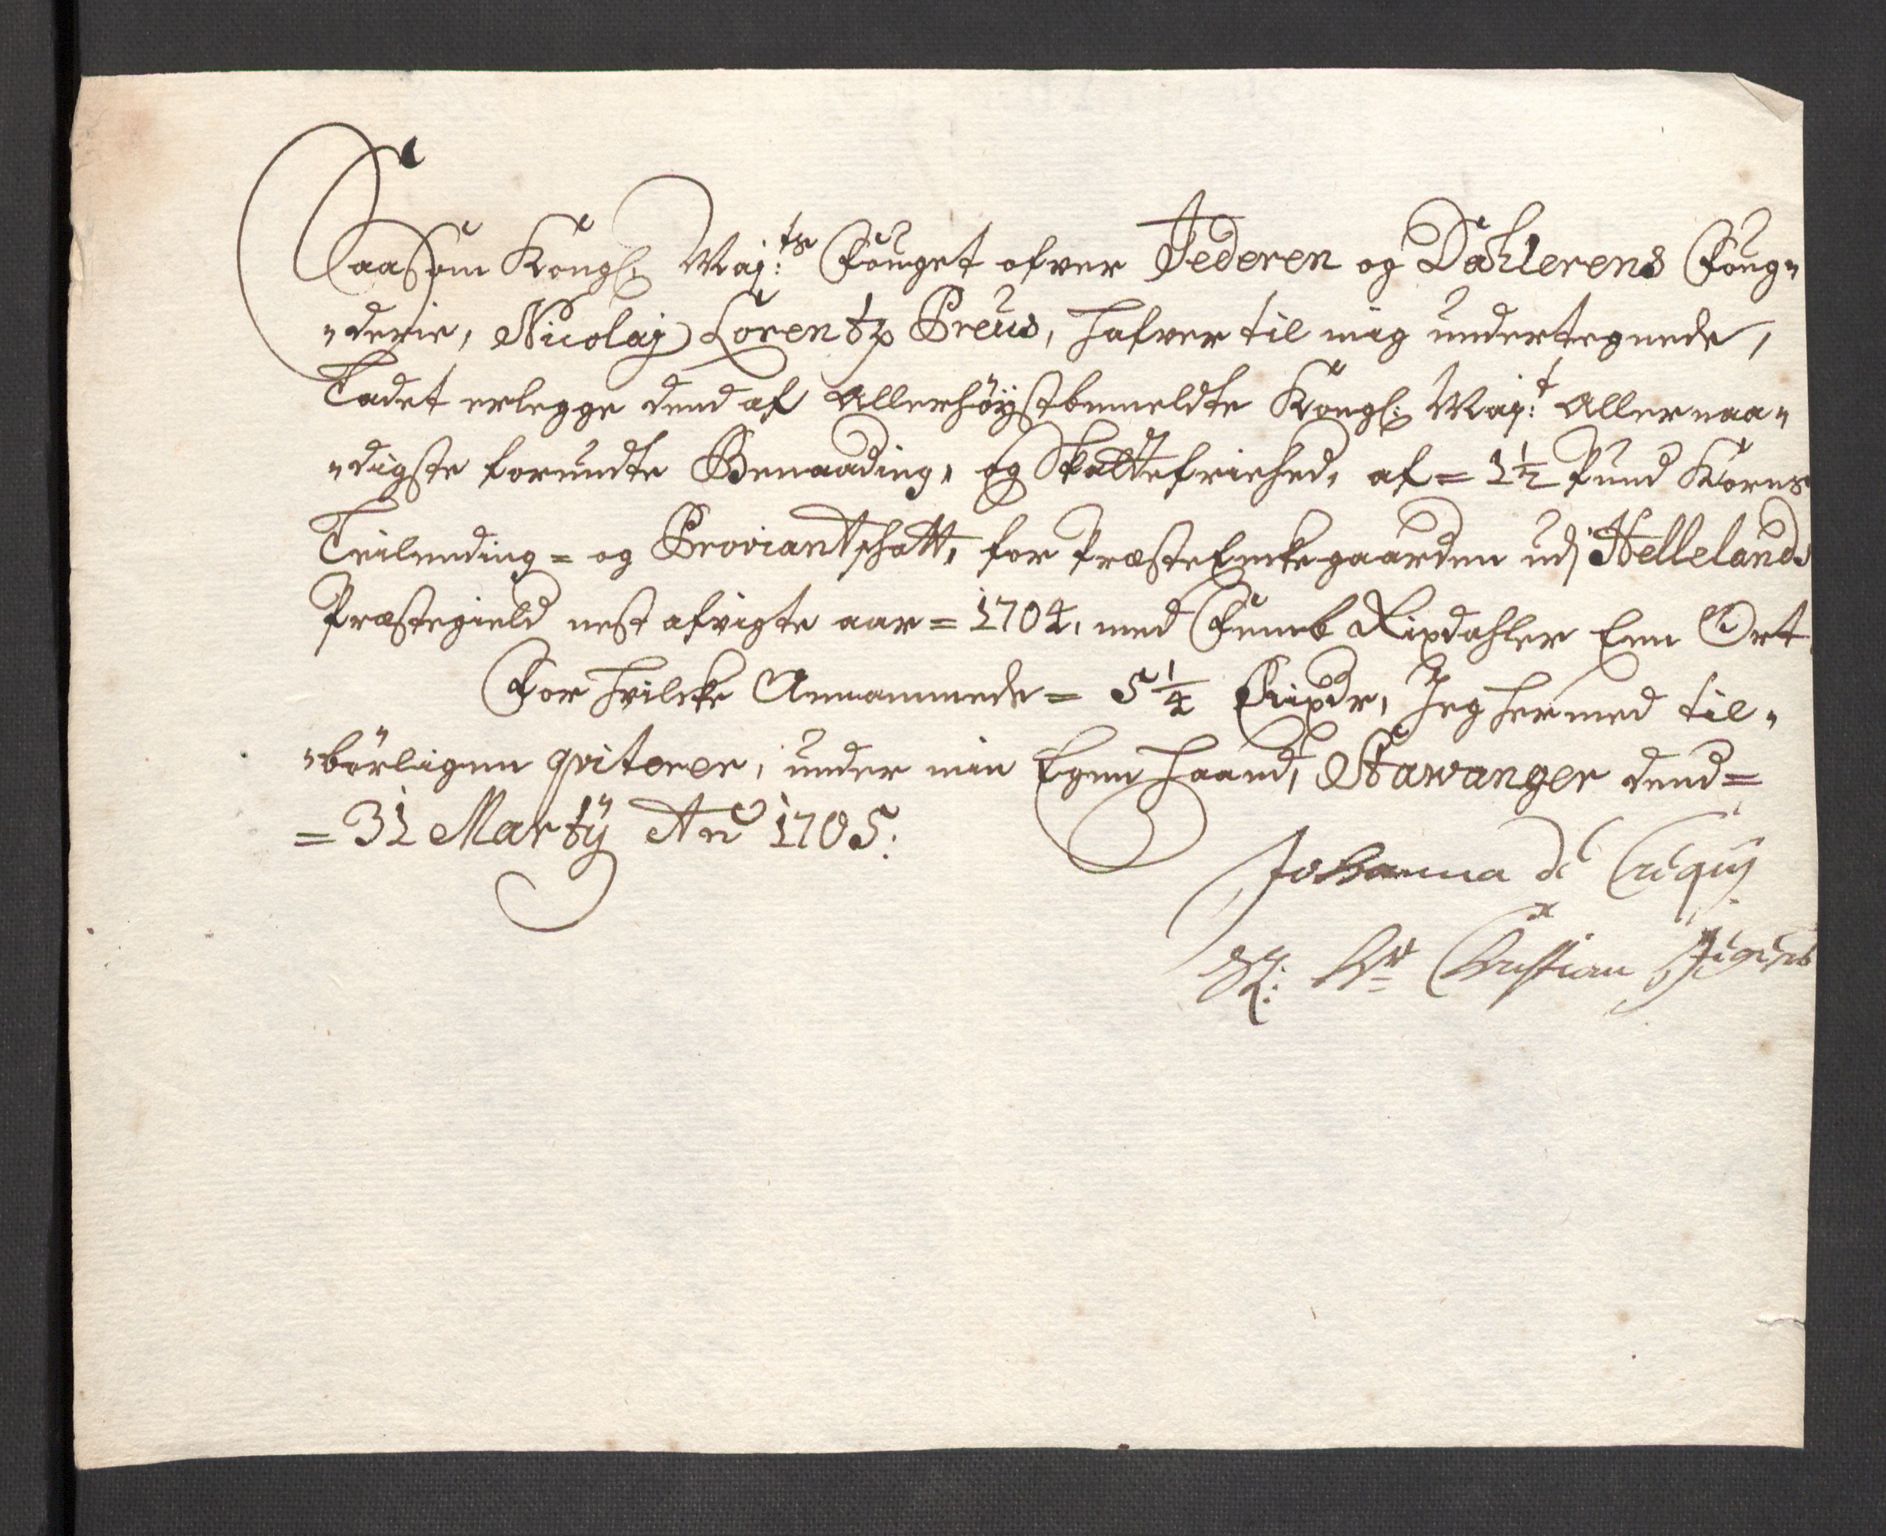 Saasom Kongl: Maj:ts Fouget ofver Jederen og Dahlerens Foug=
=derie, Nicolaj Lorentz Preus, hafver til mig undertegnede,
Ladet erlegge dend af Allerhöystbemeldte Kongl: Maj:t Allernaa=
=digste forundte Benaading, og Skattefriehed, af = 1½ Pund Korns
Leilending = og Proviantschatt, for Præste Enkegaarden udj Hellelands
Præstegield nest afvigte aar = 1704, med Femb Rixdahler Een Ort
For hvilcke Annammede = 5 ¼ Rixdr, Jeg hermed til=
=börligen qviterer, under min Egen haand, Stawanger dend =
= 31 Martij Ao 1705.
Johanna de
Sl: Hr Christian